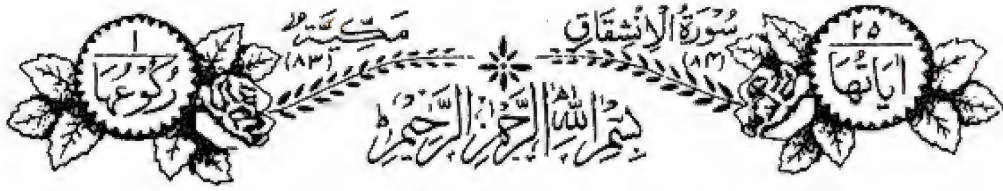 ٢٥ اٰيَاتُهَا سُوْرَةُ الْاِنْشِقَاقِ (٨٤) مَكِّيَّةٌ (٨٣) ١ رُكُوْعُهَا
بِسْمِ اللّٰهِ الرَّحْمٰنِ الرَّحِيْمِ